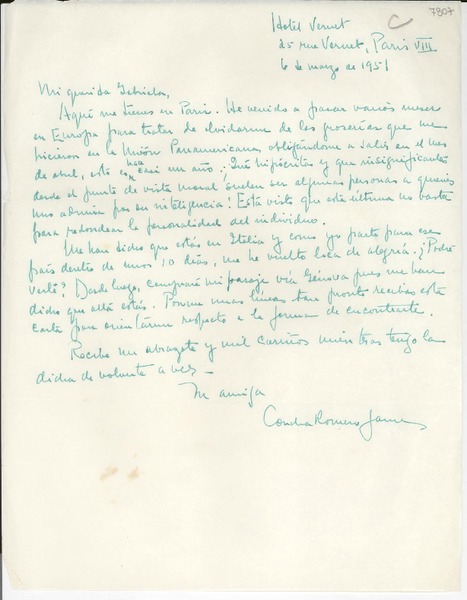 7807
C
Hotel Vernet
25 rue Vernet, Paris VIII
6 de marzo de 1951
Mi querida Gabriela,
Aquí me tienes en Paris. He venido a pasar varios meses
en Europa para tratar de olvidarme de las groserías que me
hicieron en la Unión Panamericana obligándome a salir en el mes
de abril, esto es hace casi un año. ¡Qué hipócritas y que insignificantes
desde el punto de vista moral suelen ser algunas personas a quienes
uno admira por su inteligencia! Está visto que esta última no basta
para redondear la personalidad del individuo.
Me han dicho que estás en Italia y como yo parto para ese
país dentro de unos 10 días, me he vuelto loca de alegría. ¿Podré
verte? Desde luego, compraré mi pasaje vía Génova pues me han
dicho que allá estás. Ponme unas líneas tan pronto recibas esta
carta para orientarme respecto a la forma de encontrarte.
Recibe un abrazote y mil cariños mientras tengo la
dicha de volverte a ver—
Tu amiga
Concha Romero James